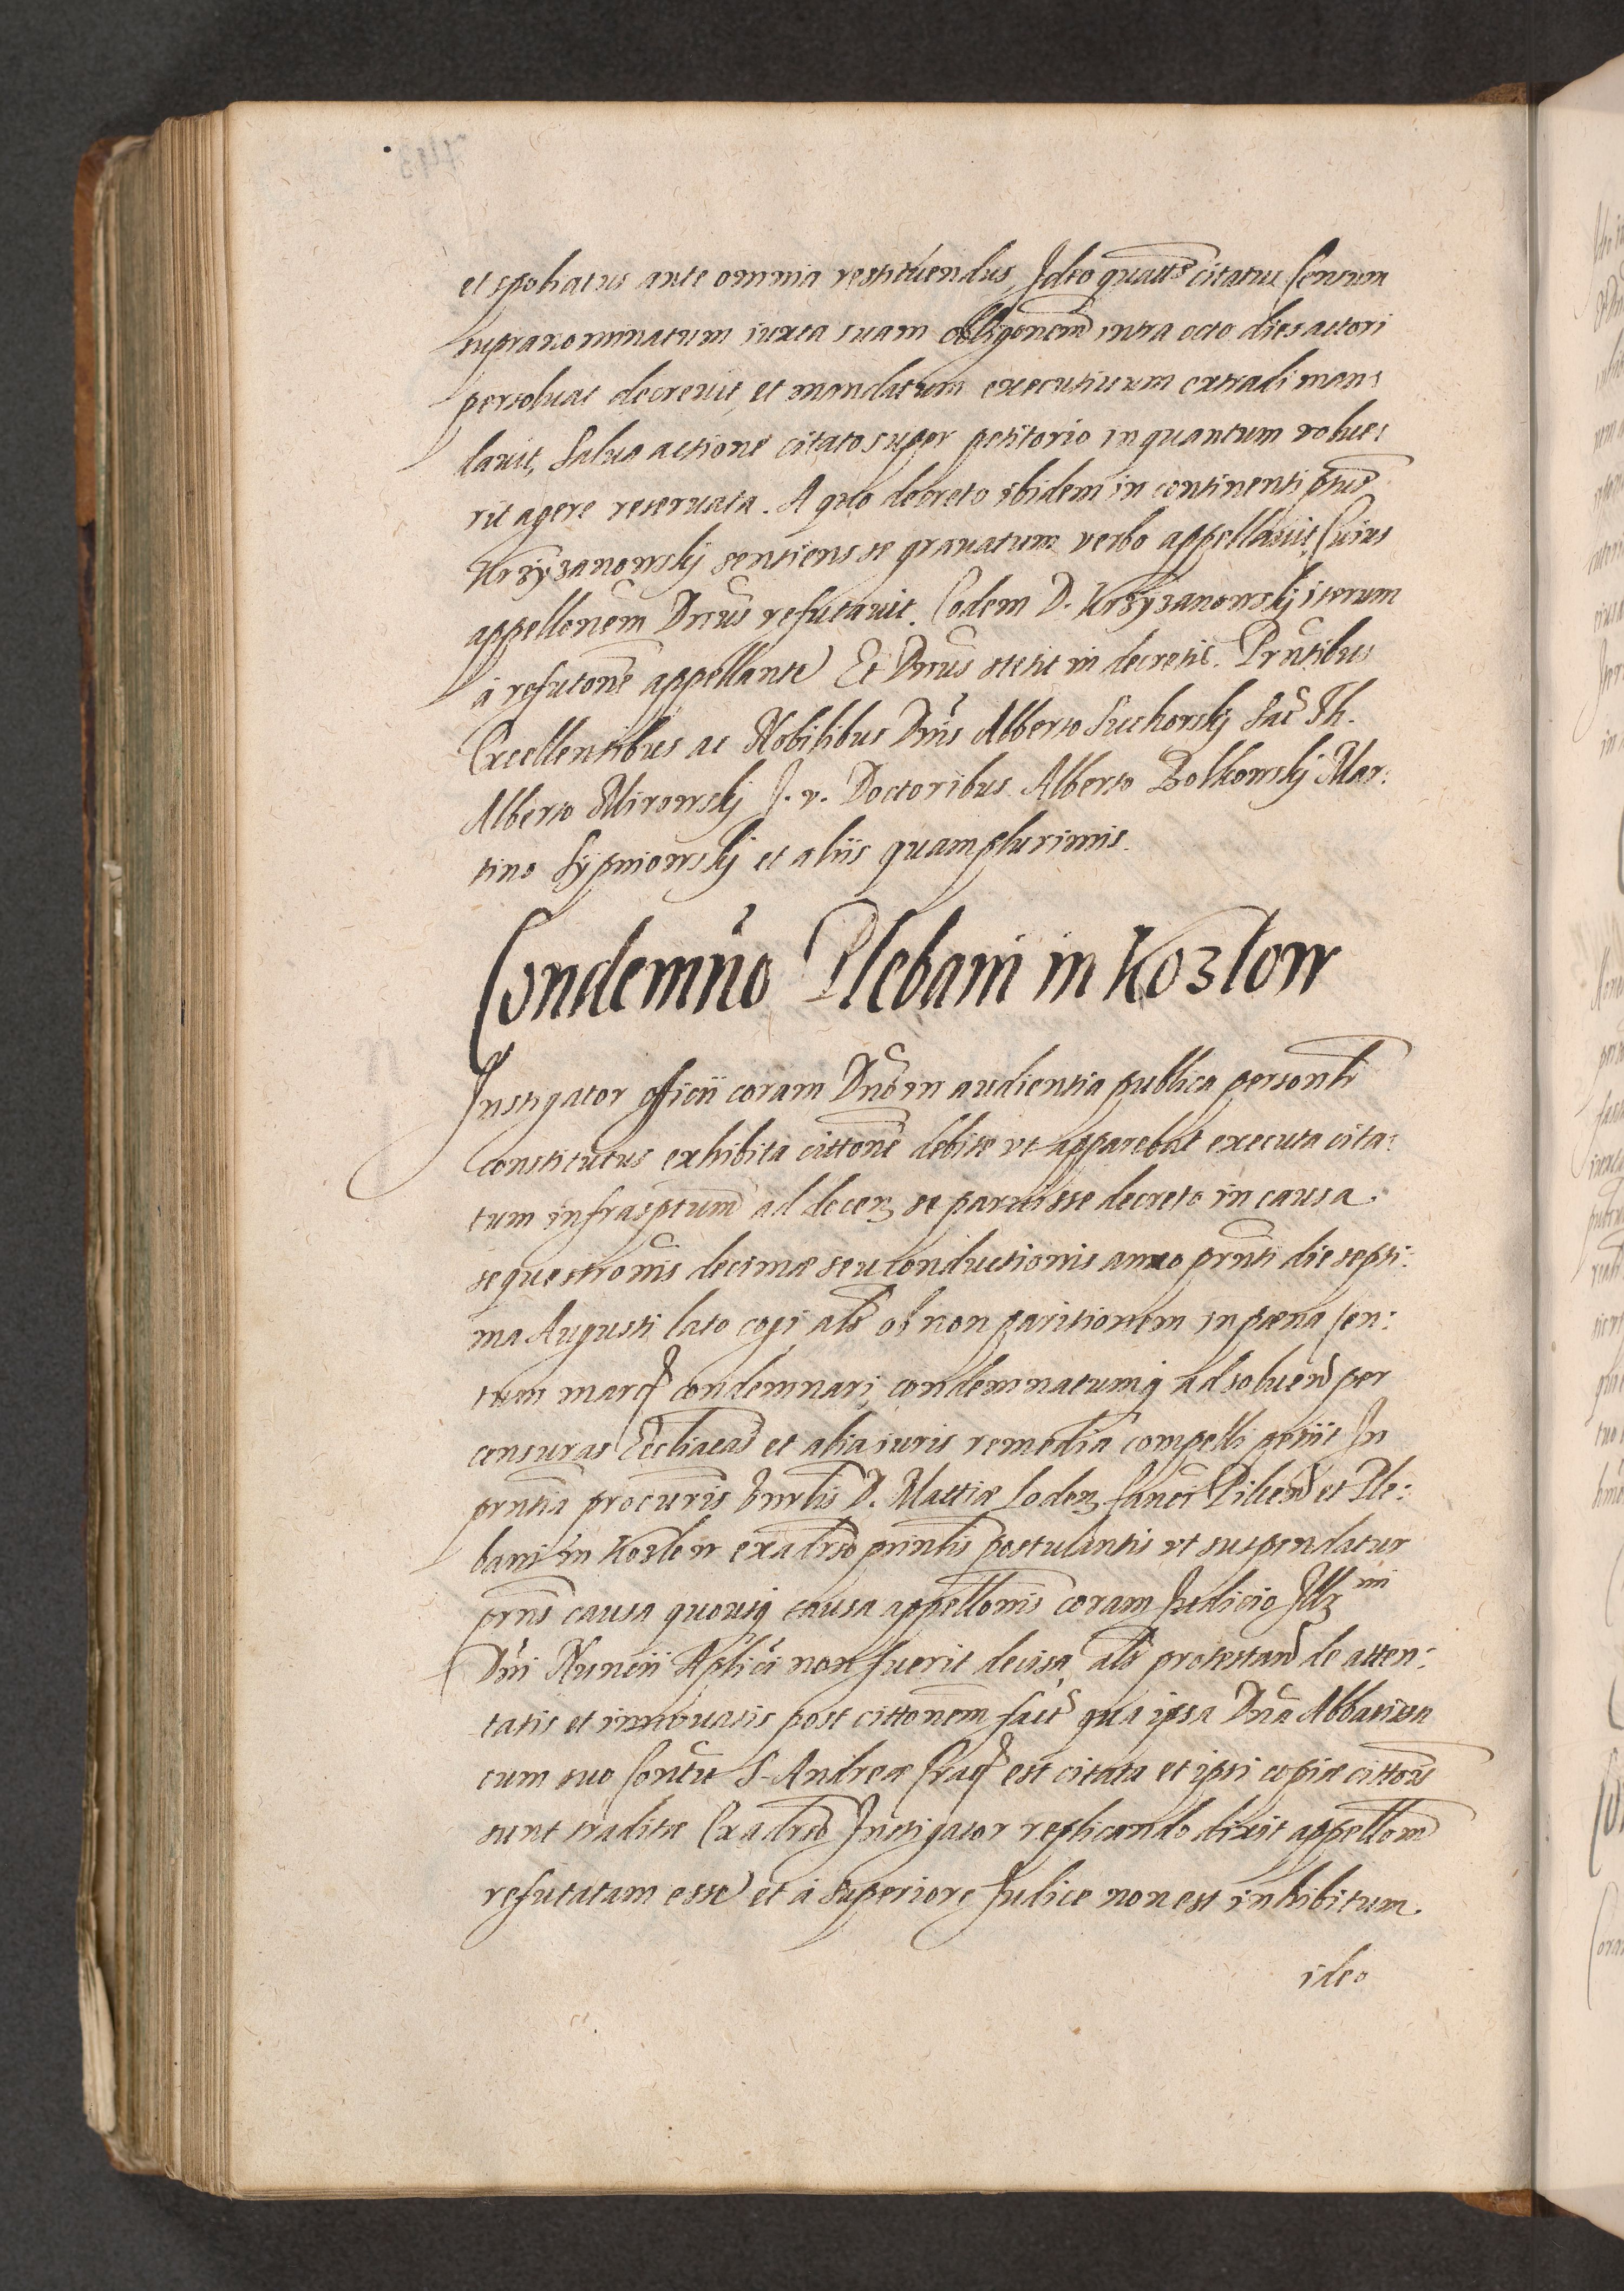 et spoliatus ante omnia restituendus, Ideo quatts citatus Censum
supranominatum iuxta suam obligonem intra octo dies actori
persoluat decreuit, et mandatum executiuum extradi man:
dauit, Salua actione citato super petitorio in quantum volue:
rit agere reseruata. A quo decreto ibidem in continenti ptus
Krzyzanowskj sentiens se grauatum verbo appellauit, Cuius
appellonem Dnus refutauit. Eodem D. Krzyzanowskj iterum
à refutone appellante Et Dnus stetit in decretis. Prntibus
Excellentibus ac Nobilibus Dnis Alberto Suchorskj Sac Th.
Alberto Mirowskj J. v. Doctoribus Alberto Bolkowskj Mar:
tino Sypniowskj et aliis quamplurimis.
Condemno Plebani in Kozlow
Instigator officii coram Dno in audientia publica personlr
constitutus exhibita cittone debite vt apparebat executa cita:
tum infrasptum ad docen se paruisse decreto in causa
sequestronis decimæ seu conductionis anno prnti die septi:
ma Augusti lato cogi als ob non paritionem in pœna Cen:
tum marc condemnari, condemnatumq ad soluend per
censuras Eccliacas et alia iuris remedia compelli petiit In
prntia procuris Dnrlis D. Mattiæ Loden Canci Pilicen et Ple:
bani in Kozlow ex adrso pnntis postulantis vt suspendatur
prns causa quousq causa appellonis coram Judicio Illmi
Dni Nuncii Aplici non fuerit decisa als protestand de atten:
tatis et innouatis post cittonem fact qua ipsa Dna Abbatissa
cum suo Contu S. Andreæ Crac est citata et ipsi copiæ cittonis
sunt traditæ Ex adrso Instigator replicando dixit appellom
refutatam esse et à superiore Judice non est inhibitum.
ideo